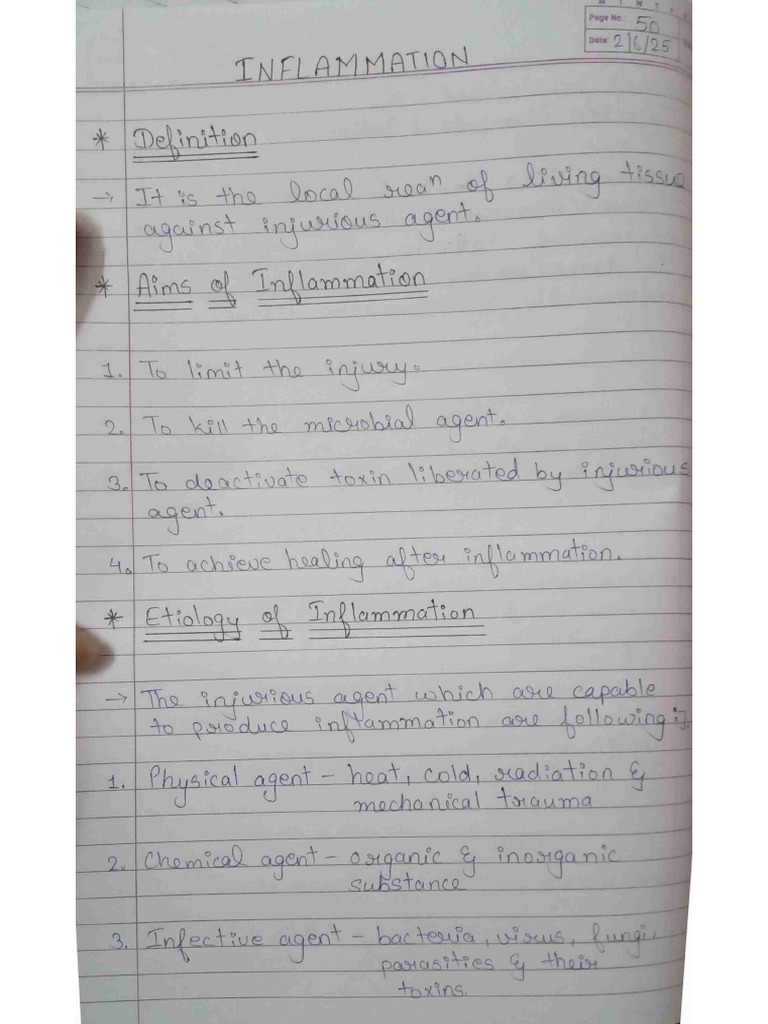 Page No. 50
Date: 2/6/25
INFLAMMATION
* Definition
→ It is the local reaⁿ of living tissue
against injurious agent.
* Aims of Inflammation
1. To limit the injury.
2. To kill the microbial agent.
3. To deactivate toxin liberated by injurious
agent.
4. To achieve healing after inflammation.
* Etiology of Inflammation
→ The injurious agent which are capable
to produce inflammation are following :-
1. Physical agent - heat, cold, radiation &
mechanical trauma
2. Chemical agent - organic & inorganic
substance
3. Infective agent - bacteria, virus, fungi,
parasities & their
toxins.